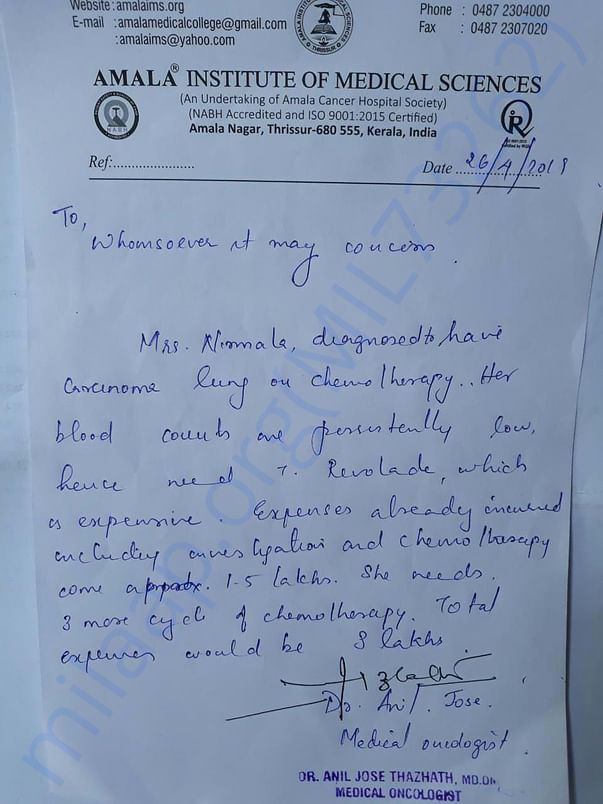 Website :amalaims.org
E-mail :amalamedicalcollege@gmail.com
:amalaims@yahoo.com
Phone : 0487 2304000
Fax : 0487 2307020
AMALA® INSTITUTE OF MEDICAL SCIENCES
(An Undertaking of Amala Cancer Hospital Society)
(NABH Accredited and ISO 9001:2015 Certified)
Amala Nagar, Thrissur-680 555, Kerala, India
Ref:......................
Date 26/4/2018
To,
Whomsoever it may concern.
Mrs. Nirmala, diagnosed to have
Carcinoma lung on chemotherapy.. Her
blood counts are persistently low,
hence need T. Revolade, which
is expensive. Expenses already incurred
including investigation and chemotherapy
come approx. 1-5 lakhs. She needs.
3 more cycle of chemotherapy. Total
expenses would be 8 lakhs
Dr. Anil. Jose.
Medical oncologist.
DR. ANIL JOSE THAZHATH, MD.DM.
MEDICAL ONCOLOGIST
milaap.org(MIL73262)